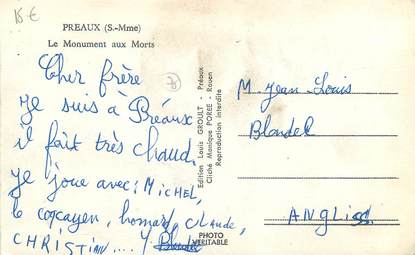 15 €
PREAUX (S.-Mme)
Le Monument aux Morts
Cher frère
je suis à Préaux
il fait très chaud.
je joue avec: MICHEL,
le cocayen, homard, claude,
CHRISTIAN.... Y. Blondel
Edition Louis GROULT - Préaux
Cliché Monique POREE - Rouen
Reproduction interdite
PHOTO
VERITABLE
M. Jean-Louis
Blondel